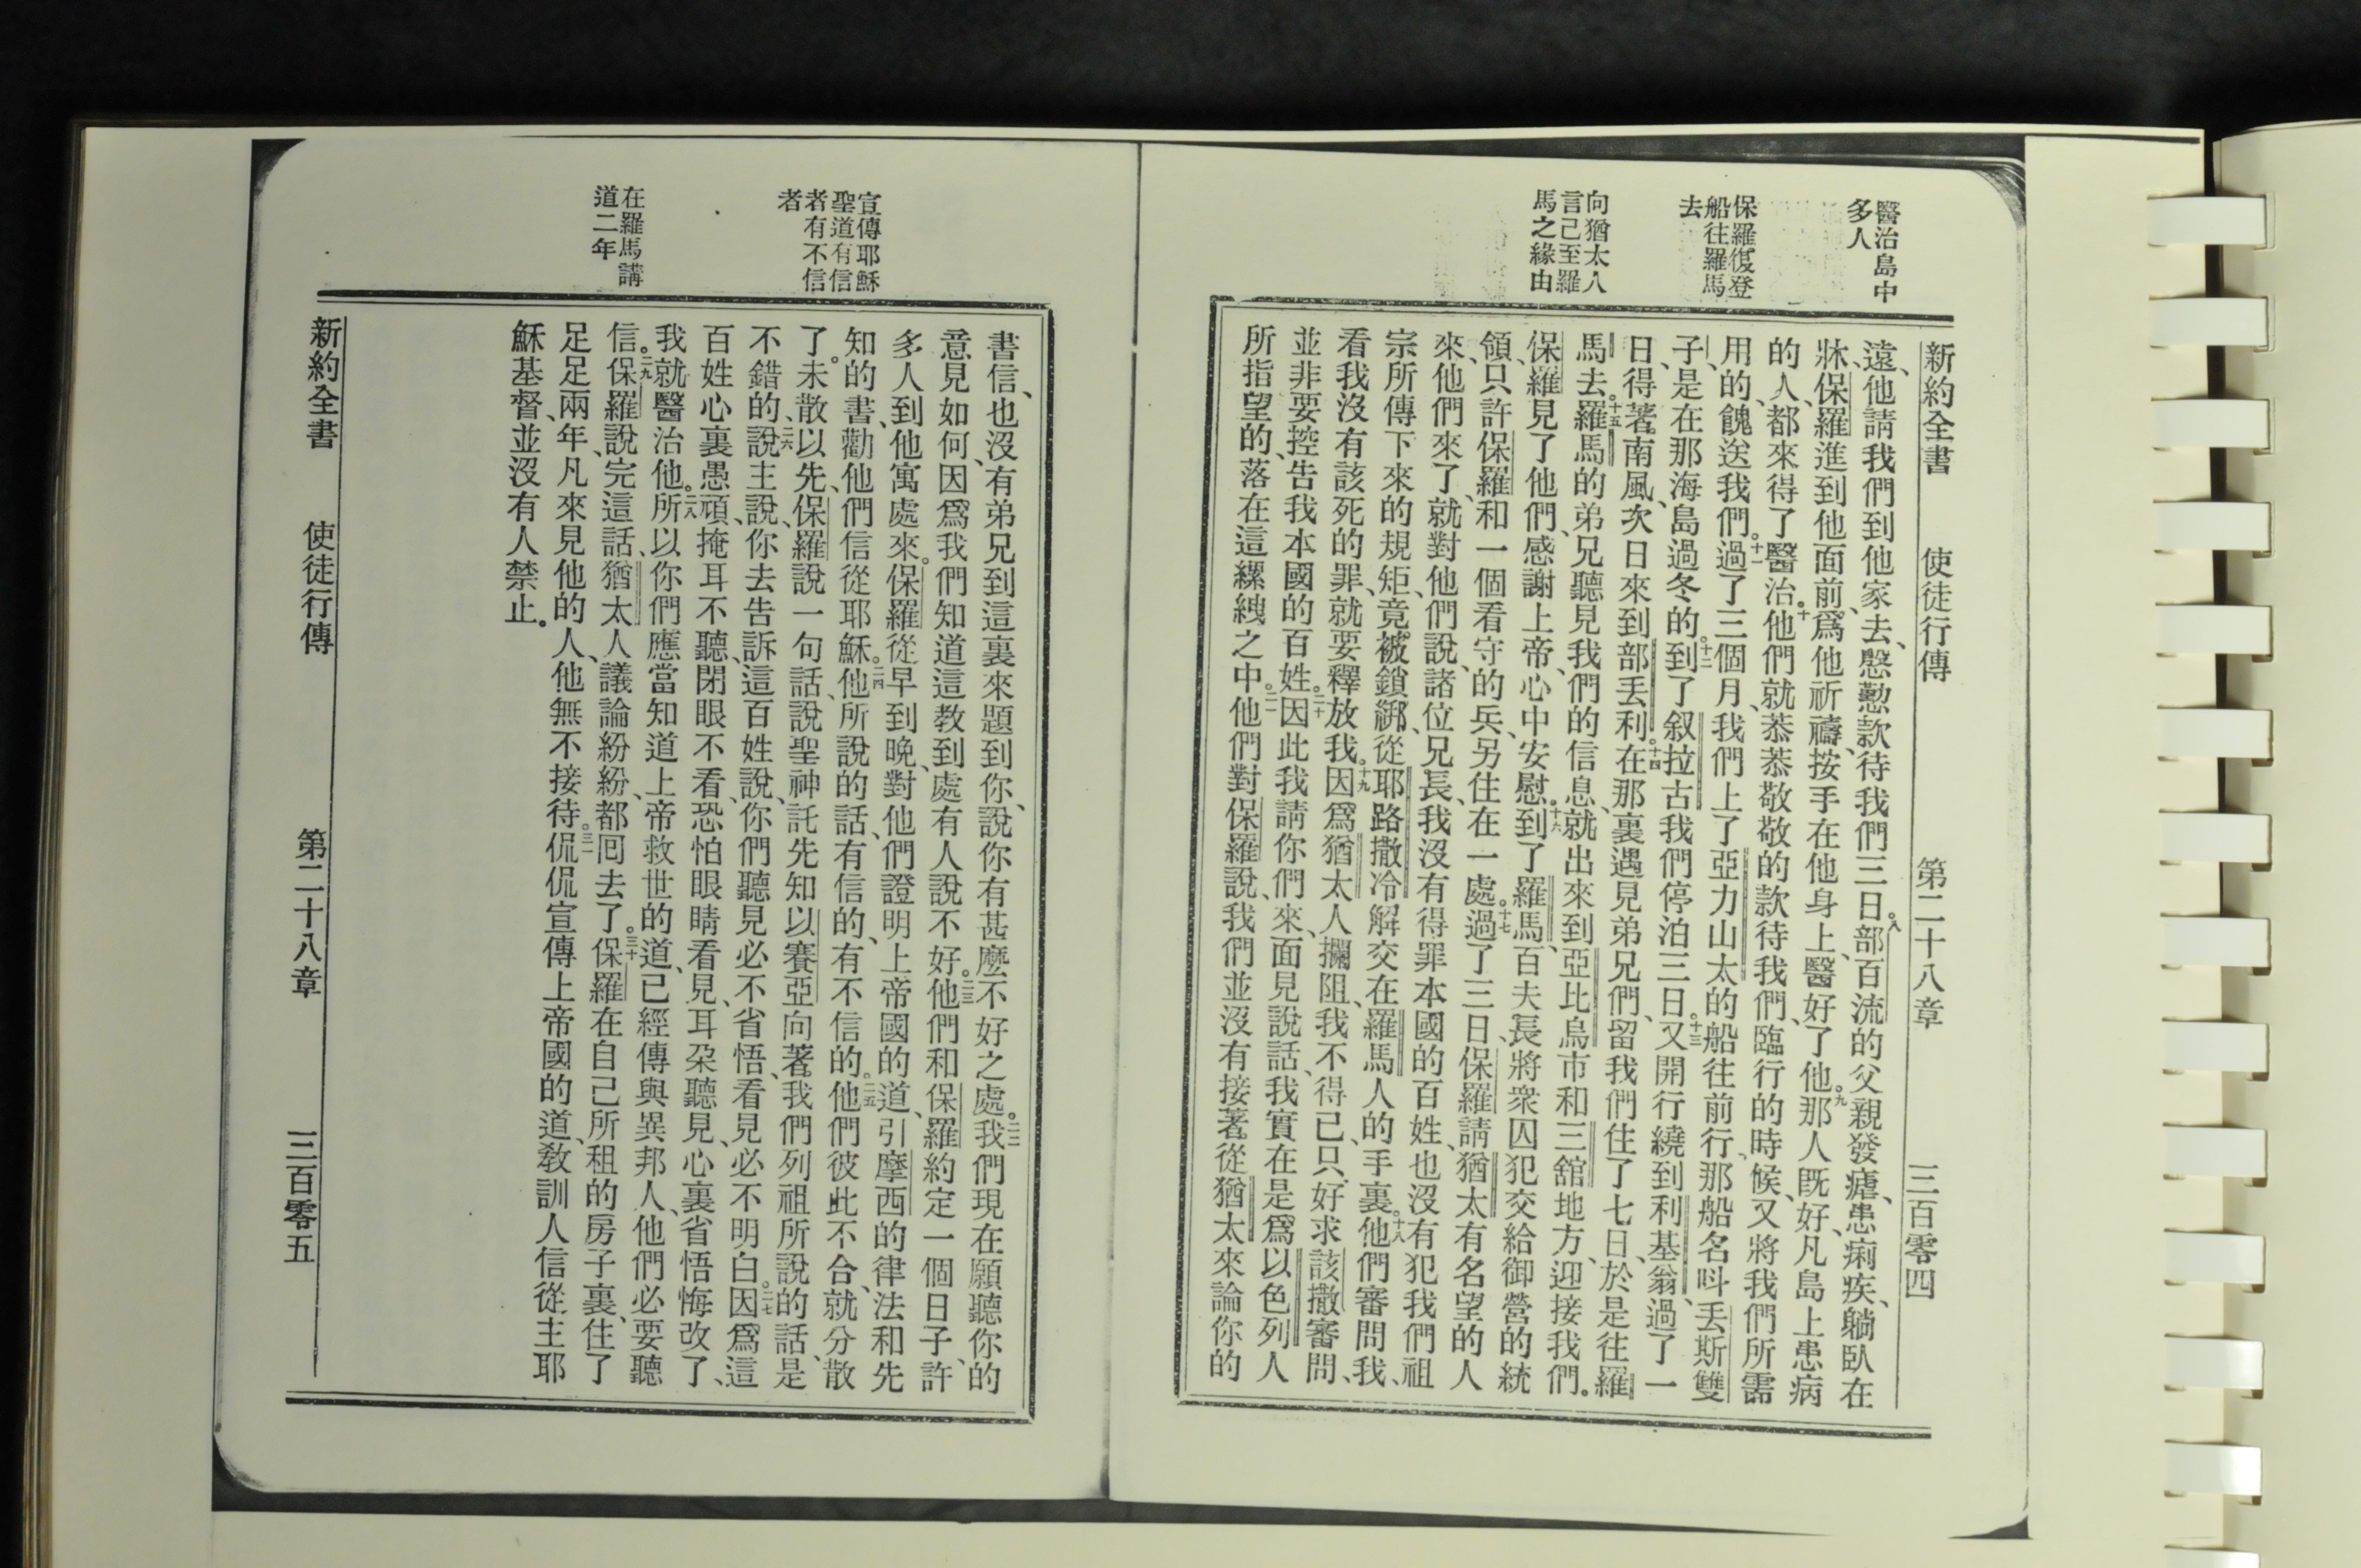 醫治島中
多人
保羅復登
船往羅馬
去
向猶太人
言己至羅
馬之緣由
新約全書 使徒行傳 第二十八章 三百零四
遠、他請我們到他家去、慇懃款待我們三日。八部百流的父親發瘧、患痢疾、躺臥在
牀、保羅進到他面前、爲他祈禱、按手在他身上、醫好了他。九那人既好、凡島上患病
的人、都來得了醫治。十他們就恭恭敬敬的款待我們、臨行的時候、又將我們所需
用的、餽送我們。十一過了三個月、我們上了亞力山太的船往前行、那船名呌丟斯雙
子、是在那海島過冬的。十二到了叙拉古我們停泊三日。十三又開行繞到利基翁、過了一
日、得著南風、次日來到部丟利。十四在那裏遇見弟兄們、留我們住了七日、於是往羅
馬去。十五羅馬的弟兄聽見我們的信息、就出來到亞比烏市和三舘地方、迎接我們。
保羅見了他們、感謝上帝、心中安慰。十六到了羅馬、百夫長將衆囚犯交給御營的統
領、只許保羅和一個看守的兵、另住在一處。十七過了三日、保羅請猶太有名望的人
來、他們來了、就對他們說、諸位兄長、我沒有得罪本國的百姓、也沒有犯我們祖
宗所傳下來的規矩、竟被鎖綁、從耶路撒冷解交在羅馬人的手裏。十八他們審問我、
看我沒有該死的罪、就要釋放我。十九因爲猶太人攔阻、我不得已、只好求該撒審問、
並非要控告我本國的百姓。二十因此我請你們來、面見說話、我實在是爲以色列人
所指望的、落在這縲絏之中。二一他們對保羅說、我們並沒有接著從猶太來論你的
宣傳耶穌
聖道有信
者有不信
者
在羅馬講
道二年
書信、也沒有弟兄到這裏來題到你、說你有甚麼不好之處。二二我們現在願聽你的
意見如何、因爲我們知道這教到處有人說不好。二三他們和保羅約定一個日子、許
多人到他寓處來。保羅從早到晚、對他們證明上帝國的道、引摩西的律法和先
知的書、勸他們信從耶穌。二四他所說的話、有信的、有不信的。二五他們彼此不合、就分散
了。未散以先、保羅說一句話、說聖神託先知以賽亞向著我們列祖所說的話、是
不錯的、二六說主說、你去告訴這百姓說、你們聽見必不省悟、看見必不明白。二七因爲這
百姓心裏愚頑、掩耳不聽、閉眼不看、恐怕眼睛看見、耳朶聽見、心裏省悟悔改了、
我就醫治他。二八所以你們應當知道上帝救世的道、已經傳與異邦人、他們必要聽
信。二九保羅說完這話、猶太人議論紛紛、都囘去了。三十保羅在自己所租的房子裏、住了
足足兩年、凡來見他的人、他無不接待。三一侃侃宣傳上帝國的道、教訓人信從主耶
穌基督、並沒有人禁止。
新約全書 使徒行傳 第二十八章 三百零五